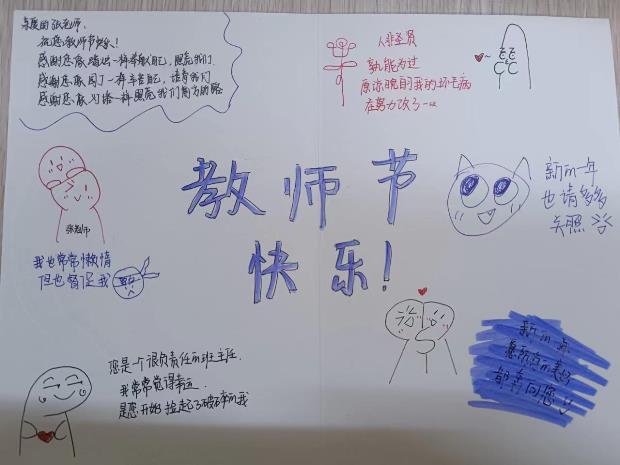 尊敬的张老师:
祝您教师节快乐!
感谢您像蜡烛一样奉献自己,照亮我们
感谢您像园丁一样辛苦自己,培育我们
感谢您像灯塔一样照亮我们前方的路
人非圣贤
孰能无过
原谅晚自习我的坏毛病
在努力改了
教师节
快乐!
新的一年
也请多多
关照
张老师
我也常常懒惰
但也督促我
您是一个很负责任的班主任
我常常觉得幸运
是您开始捡起了破碎的我
新的一年
愿所有的美好
都奔向您